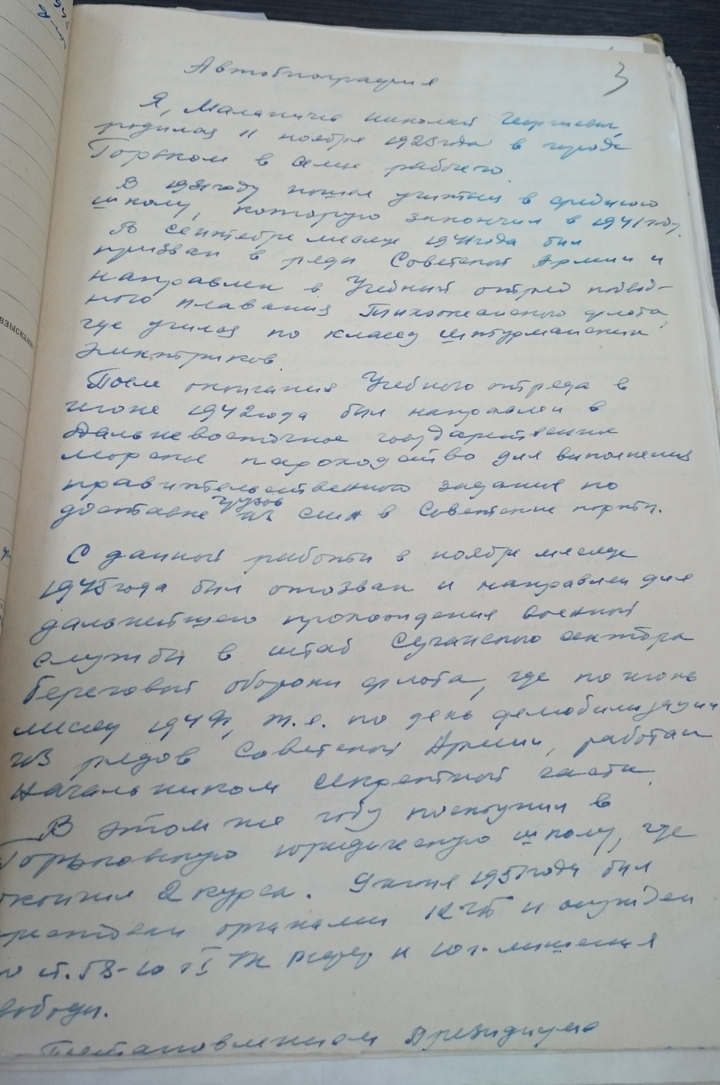 3
Автобиография
Я, Николай Георгиевич
родился 11 ноября 1923 года в городе
Горьком в семье рабочего.
В 1931 году пошел учиться в среднюю
школу, которую закончил в 1941 году.
В сентябре месяце 1941 года был
призван в ряды Советской Армии и
направлен в Учебный отряд подвод-
ного плавания Тихоокеанского флота,
где учился по классу штурманских
электриков.
После окончания Учебного отряда в
июне 1942 года был направлен в
Дальневосточное государственное
морское пароходство для выполнения
правительственного задания по
доставке грузов из США в Советские порты.
С данной работы в ноябре месяце
1945 года был отозван и направлен для
дальнейшего прохождения военной
службы в штаб Сучанского сектора
береговой обороны флота, где по июнь
месяц 1949, т.е. по день демобилизации
из рядов Советской Армии, работал
начальником секретной части.
В этом же году поступил в
Горьковскую юридическую школу, где
окончил 2 курса. 1951 года был
арестован органами КГБ и осужден
по ст. 58-10 ч I УК РСФСР к 10 г. лишения
свободы.
Постановлением Президиума
взыскани